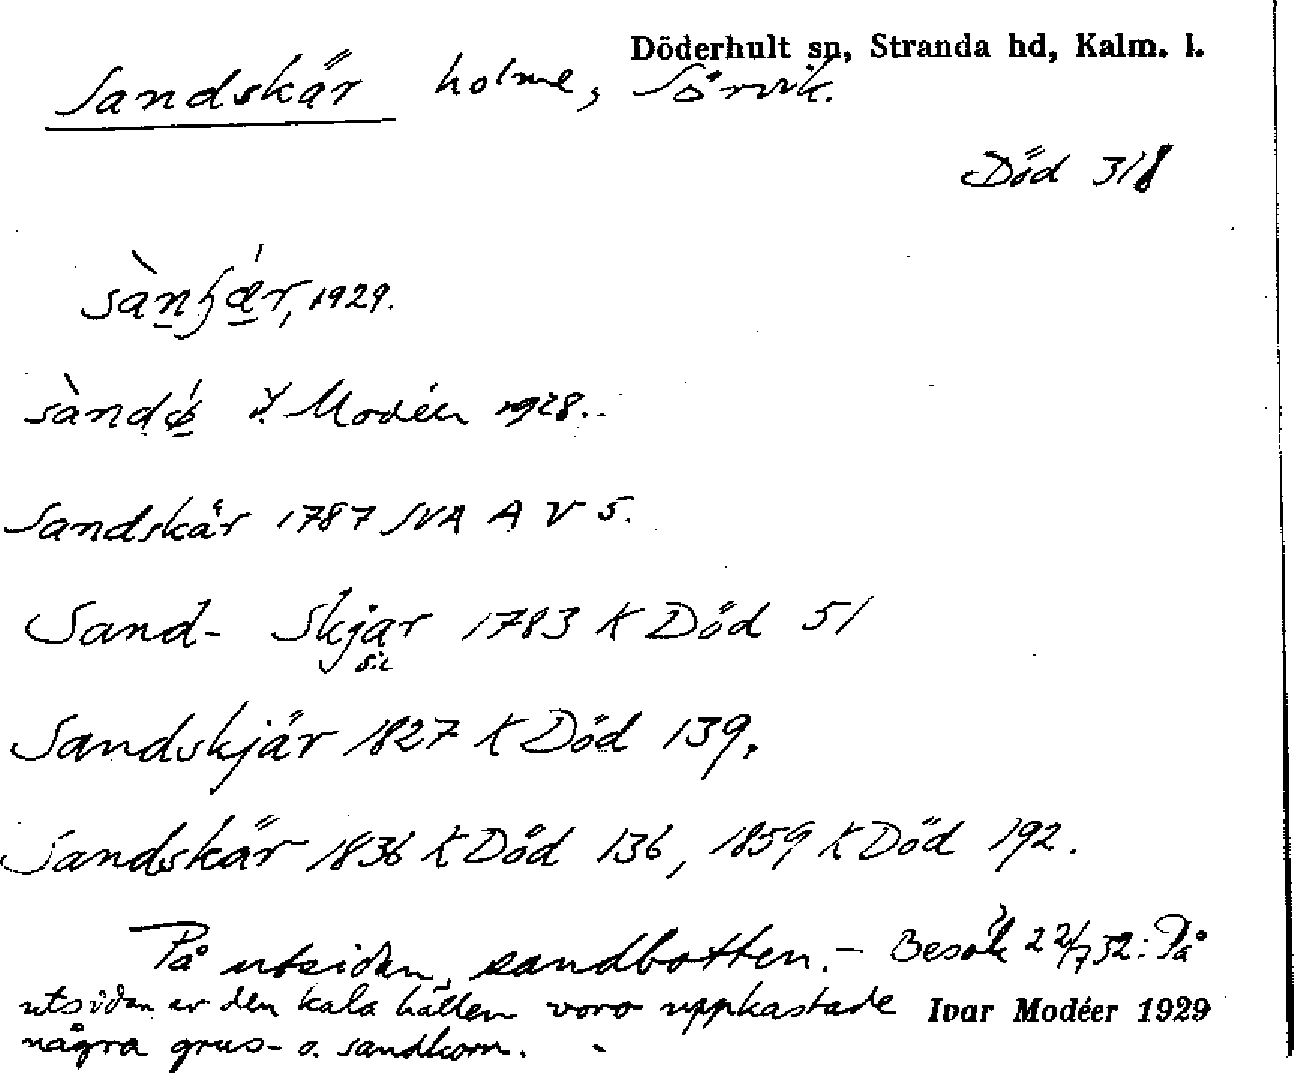 Döderhult sn, Stranda hd, Kalm. l.
Sandskär holme, Sörvik.
Död 318
sàn̲ʃǽ̲r, 1929.
sàndǿ Modéer 1928.
Sandskär 1787 SVA A V 5.
Sand- Skjar 1783 K Död 51
sic
Sandskjär 1827 K Död 139.
Sandskär 1836 K Död 136, 1859 K Död 192.
På utsidan sandbotten. – Besök 22/7 32: På
utsidan av den kala hällen voro uppkastade
några grus- o. sandkorn.
Ivar Modéer 1929